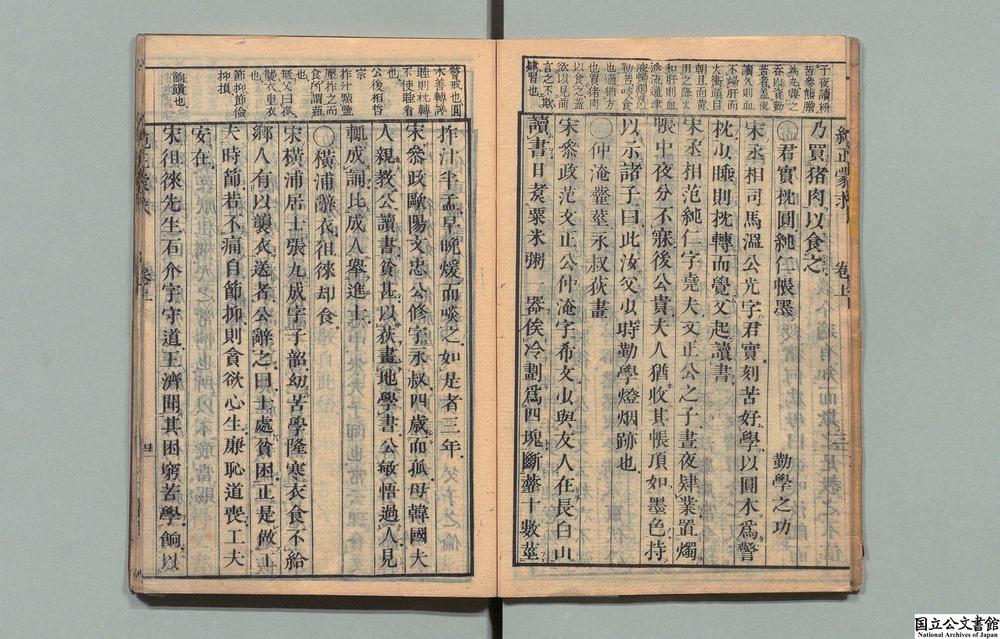 純正蒙求 卷上
子夜讀
苦參熊膽
乃買猪肉以食之
君實枕圓純仁帳墨 勤學之功
宋丞相司馬溫公光字君實刻苦好學以圓木爲警
枕少睡則枕轉而覺又起讀書
宋丞相范純仁字堯夫文正公之子晝夜肄業置燭
帳中夜分不寐後公貴夫人猶收其帳頂如墨色持
以示諸子曰此汝父少時勤學燈烟跡也
仲淹虀莖永叔荻畫
宋參政范文正公仲淹字希文少與友人在長白山
讀書日煮粟米粥一器俟冷劃爲四塊斷虀十數莖
肄習也
三
警戒也圓
木善轉
睡則枕轉
不使睡着
公後相哲
宗
壓柞之而
食所謂虀
也
無父曰孤
襲衣重衣
也
節抑節儉
抑損
餉饋也
柞汁半盂早晚煖而啖之如是者三年
宋參政歐陽文忠公修字永叔四歲而孤母韓國夫
人親教公讀書貧甚以荻畫地學書公敏悟過人見
輒成誦比成人舉進士
橫浦辭衣徂徠却食
宋橫浦居士張九成字子韶幼苦學隆寒衣食不給
鄉人有以襲衣送者公辭之曰士處貧困正是做工
夫時節若不痛自節抑則貪欲心生廉恥道喪工夫
安在
宋徂徠先生石介字守道王濟聞其困窮苦學餉以
四
国立公文書館
National Archives of Japan